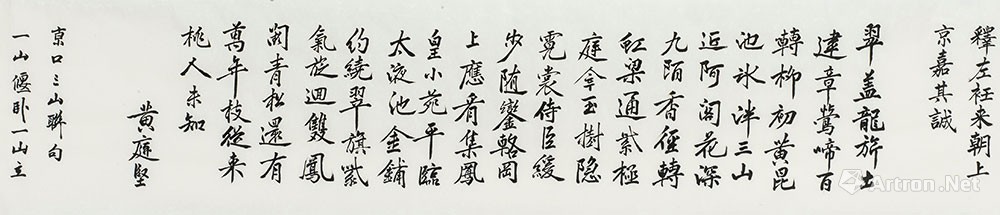 釋左衽来朝上
京嘉其誠
翠盖龍旂出
建章鶯啼百
轉柳初黄昆
池氷泮三山
近阿閣花深
九陌香徑轉
虹梁通紫極
庭含玉樹隐
霓裳侍臣緩
步随鑾輅岡
上應看集鳳
皇小苑平臨
太液池金鋪
约繞翠旗紫
氣旋迴雙鳳
闕青松還有
萬年枝從来
桃人未知
黄庭堅
京口三山聨句
一山偃卧一山立
Artron.Net